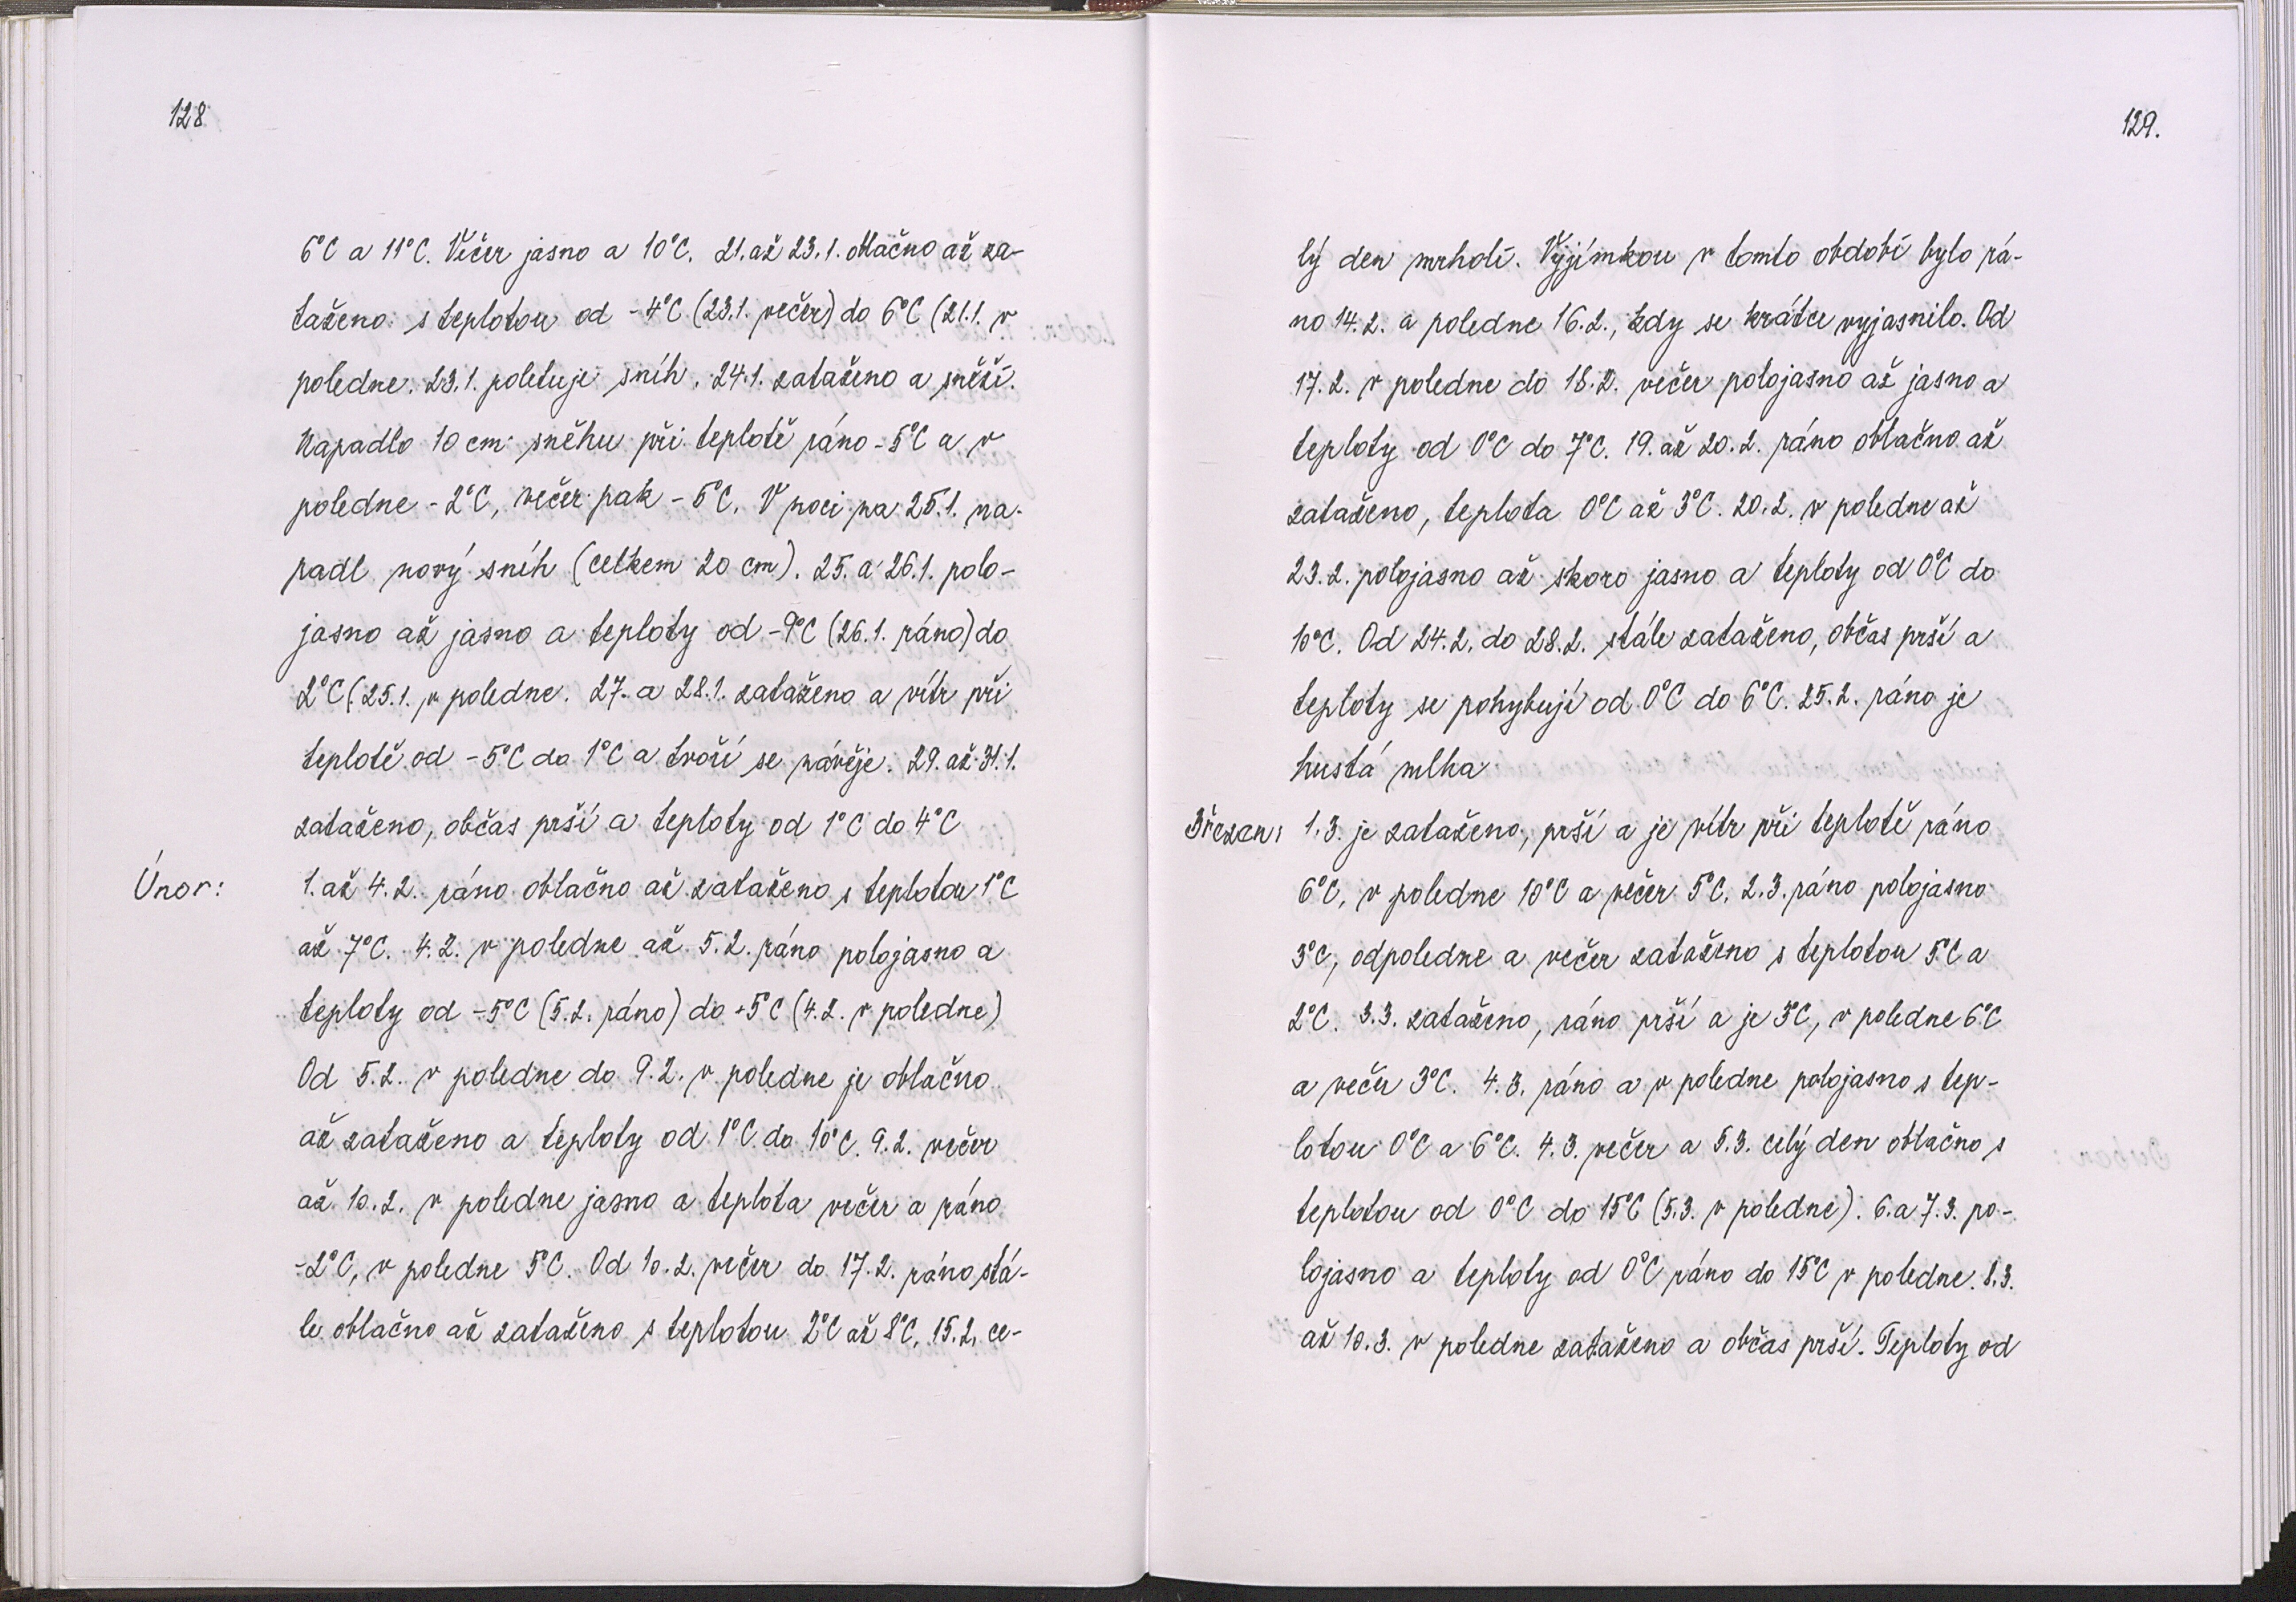 128
6°C a 11°C. Večer jasno a 10°C. 21. až 23.1. oblačno až za-
taženo s teplotou od -4°C (23.1. večer) do 6°C (21.1. v
poledne. 23.1. poletuje sníh. 24.1. zataženo a sněží.
Napadlo 10 cm sněhu při teplotě ráno -5°C a v
poledne -2°C, večer pak -5°C. V noci na 25.1. na-
padl nový sníh (celkem 20 cm). 25. a 26.1. polo-
jasno až jasno a teploty od -9°C (26.1. ráno) do
2°C (25.1. v poledne. 27. a 28.1. zataženo a vítr při
teplotě od -5°C do 1°C a tvoří se závěje. 29. až 31.1.
zataženo, občas prší a teploty od 1°C do 4°C
Únor: 1. až 4.2. ráno oblačno až zataženo s teplotou 1°C
až 7°C. 4.2. v poledne až 5.2. ráno polojasno a
teploty od -5°C (5.2. ráno) do +5°C (4.2. v poledne)
Od 5.2. v poledne do 9.2. v poledne je oblačno
až zataženo a teploty od 1°C do 10°C. 9.2. večer
až 10.2. v poledne jasno a teplota večer a ráno
-2°C, v poledne 5°C. Od 10.2. večer do 17.2. ráno stá-
le oblačno až zataženo s teplotou 2°C až 8°C, 15.2. ce-
129.
lý den mrholí. Vyjímkou v tomto období bylo rá-
no 14.2. a poledne 16.2., kdy se krátce vyjasnilo. Od
17.2. v poledne do 18.2. večer polojasno až jasno a
teploty od 0°C do 7°C. 19. až 20.2. ráno oblačno až
zataženo, teplota 0°C až 3°C. 20.2. v poledne až
23.2. polojasno až skoro jasno a teploty od 0°C do
10°C. Od 24.2. do 28.2. stále zataženo, občas prší a
teploty se pohybují od 0°C do 6°C. 25.2. ráno je
hustá mlha
Březen: 1.3. je zataženo, prší a je vítr při teplotě ráno
6°C, v poledne 10°C a večer 5°C. 2.3. ráno polojasno
3°C, odpoledne a večer zataženo s teplotou 5°C a
2°C. 3.3. zataženo, ráno prší a je 3°C, v poledne 6°C
a večer 3°C. 4.3. ráno a v poledne polojasno s tep-
lotou 0°C a 6°C. 4.3. večer a 5.3. celý den oblačno s
teplotou od 0°C do 15°C (5.3. v poledne). 6. a 7.3. po-
lojasno a teploty od 0°C ráno do 15°C v poledne. 8.3.
až 10.3. v poledne zataženo a občas prší. Teploty od